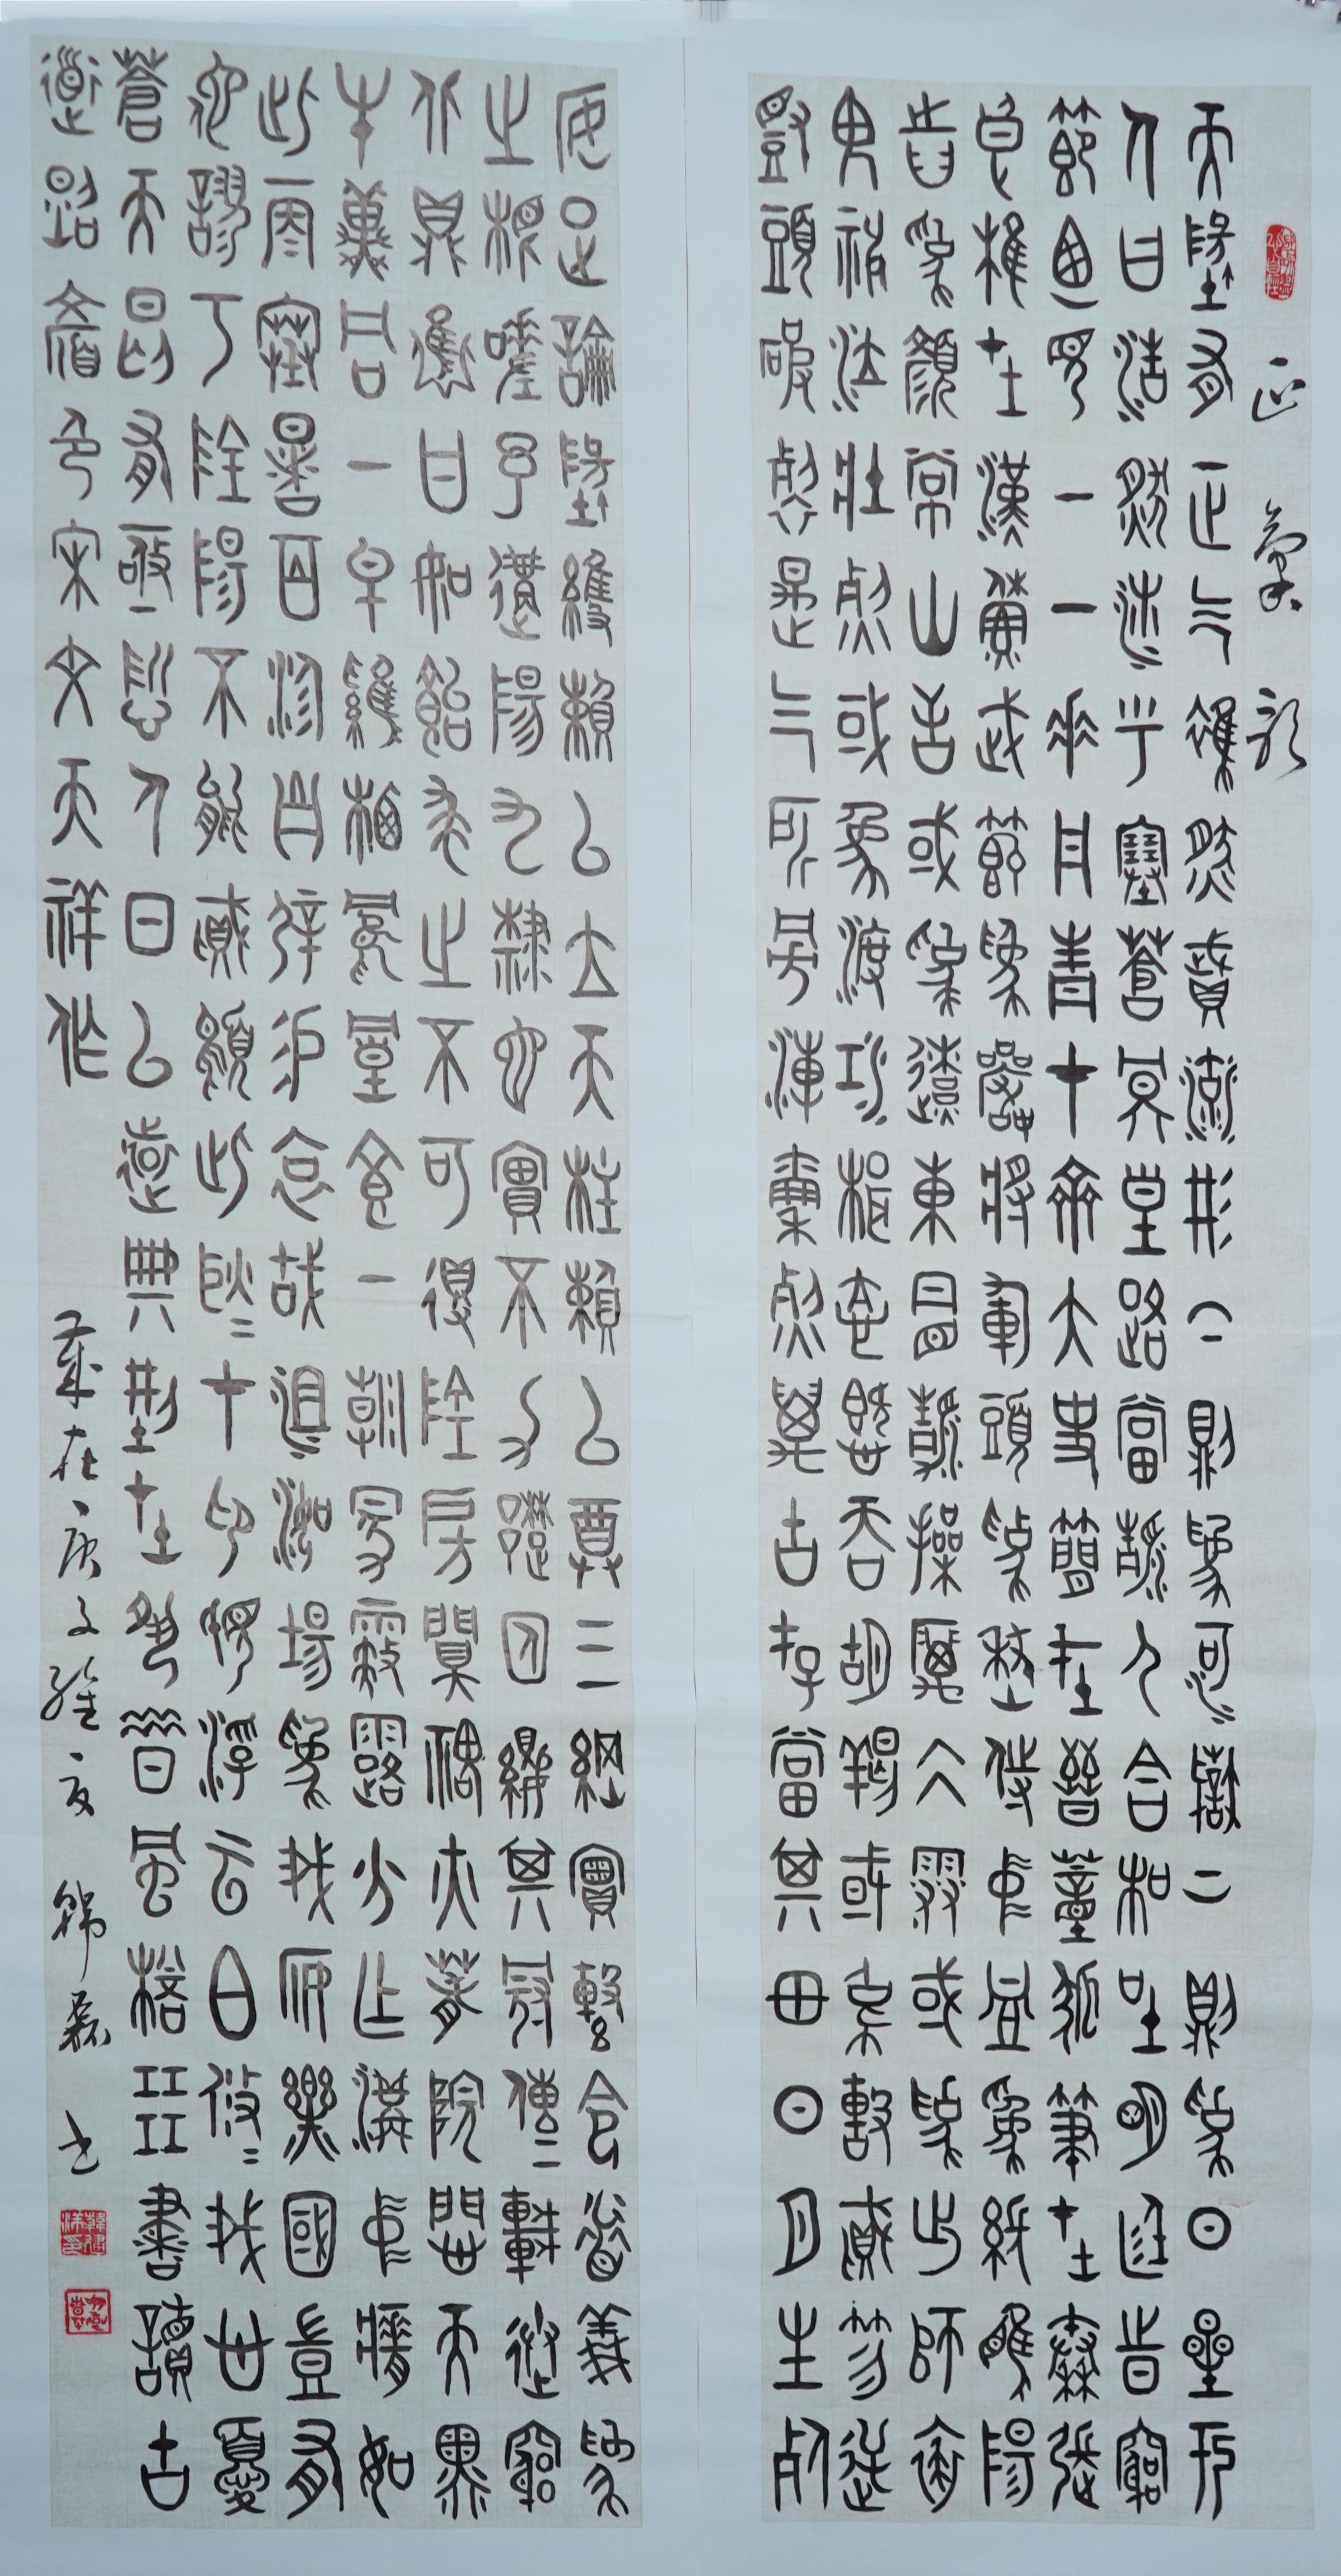 正氣歌
天地有正氣雜然賦流形下則為河嶽上則為日星於
人曰浩然沛乎塞蒼冥皇路當清夷含和吐明庭時窮
節乃見一一垂丹青在齊太史簡在晉董狐筆在秦張
良椎在漢蘇武節為嚴將軍頭為嵇侍中血為張睢陽
齒為顏常山舌或為遼東帽清操厲冰雪或為出師表
鬼神泣壯烈或為渡江楫慷慨吞胡羯或為擊賊笏逆
豎頭破裂是氣所旁薄凜烈萬古存當其貫日月生死
安足論地維賴以立天柱賴以尊三綱實繫命道義為
之根嗟予遘陽九隸也實不力楚囚纓其冠傳車送窮
北鼎鑊甘如飴求之不可得陰房闃鬼火春院閟天黑
牛驥同一皁雞棲鳳凰食一朝蒙霧露分作溝中瘠如
此再寒暑百沴自辟易哀哉沮洳場為我安樂國豈有
他謬巧陰陽不能賊顧此耿耿在仰視浮雲白悠悠我心憂
蒼天曷有極哲人日已遠典型在夙昔風簷展書讀古
道照顏色宋文天祥作
歲在庚子夏韓書